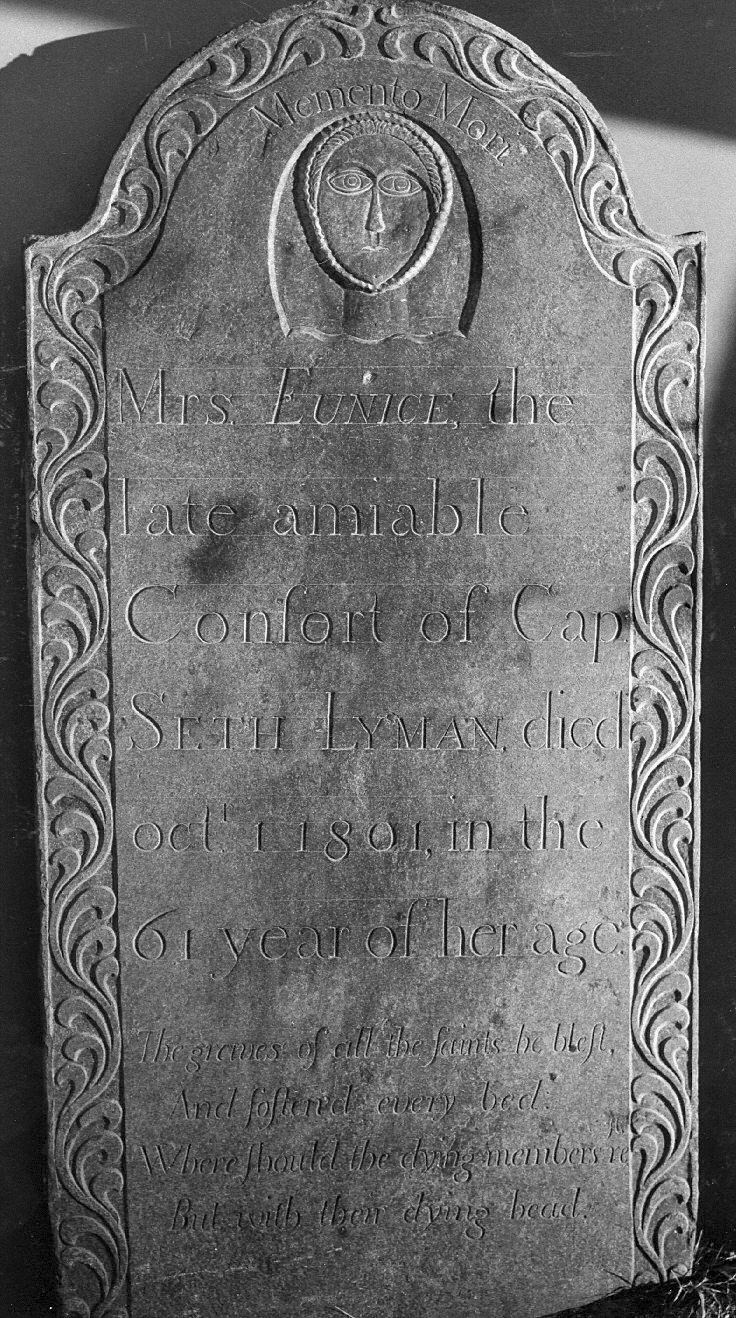 Memento Mori
Mrs. EUNICE, the
late amiable
Conſort of Cap.
SETH LYMAN, died
oct.r 1 1801, in the
61 year of her age.
The graves of all the ſaints he bleſt,
And ſoften'd every bed:
Where ſhould the dying members reſt
But with their dying head.